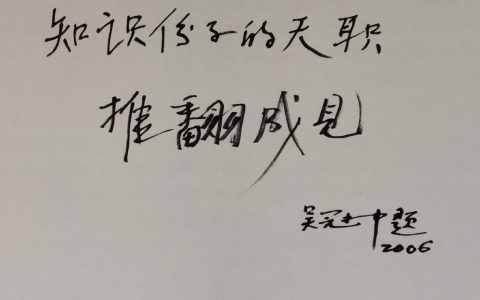 知识份子的天职
推翻成见
吴冠中题
2006